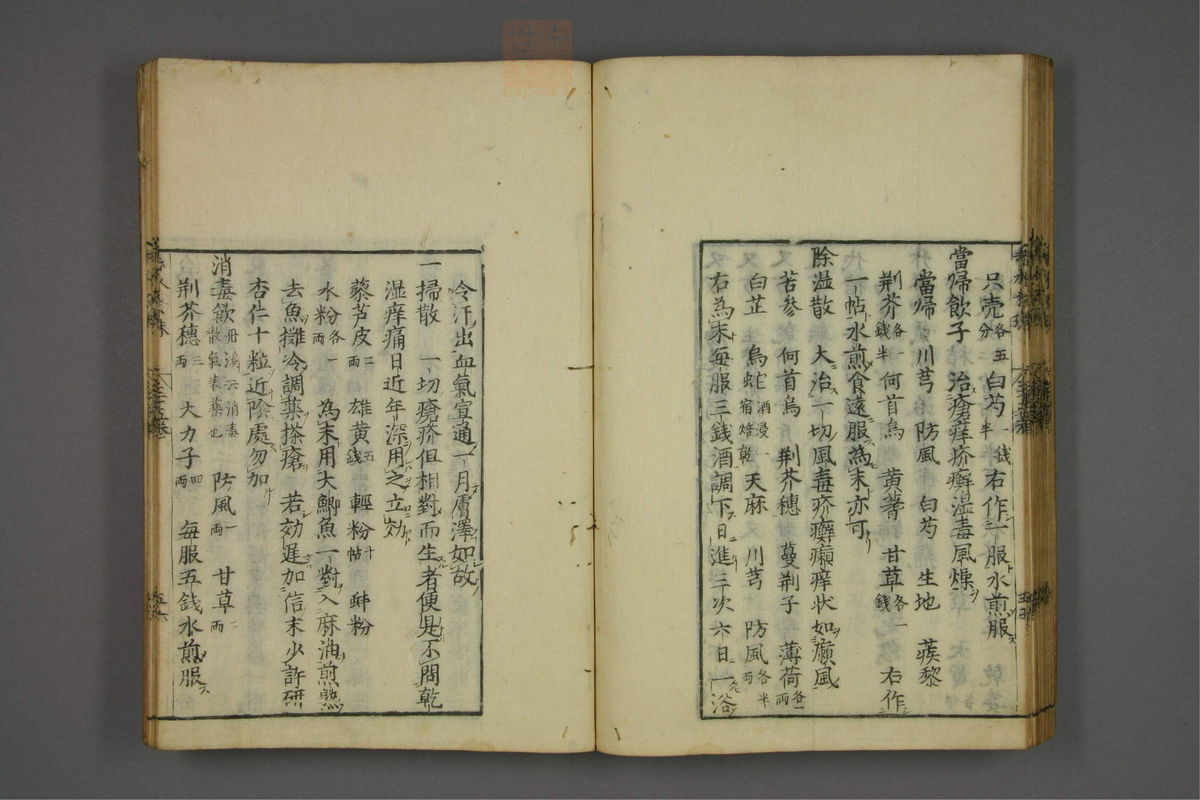 只壳各五分 白芍一錢半 右作一服水煎服
當帰飲子 治瘡痒疥癬湿毒風燥
當帰 川芎 防風 白芍 生地 蒺藜
荆芥各一錢半 何首烏 黄芪 甘草各一錢 右作
一帖水煎食遠服為末亦可
除湿散 大治一切風毒疥癬癩痒状如癩風
苦参 何首烏 荆芥穗 蔓荆子 薄荷各一両
白芷 烏蛇酒浸一宿焙乾 天麻 川芎 防風各半両
右為末毎服三錢酒調下日進三次六日一浴
令汗出血氣宣通一月膚澤如故
一掃散 一切瘡疥但相對而生者便是不問乾
湿痒痛日近年深用之立効
藜芦皮二両 雄黄五錢 輕粉十帖 蚌粉
水粉各一両 為末用大鯽魚一對入麻油煎熟
去魚攤冷調藥搽瘡 若効遲加信末少許研
杏仁十粒近陰處勿加
消毒飲丹溪云消毒散氣表藥也 防風一両 甘草二両
荆芥穗三両 大力子四両 毎服五錢水煎服